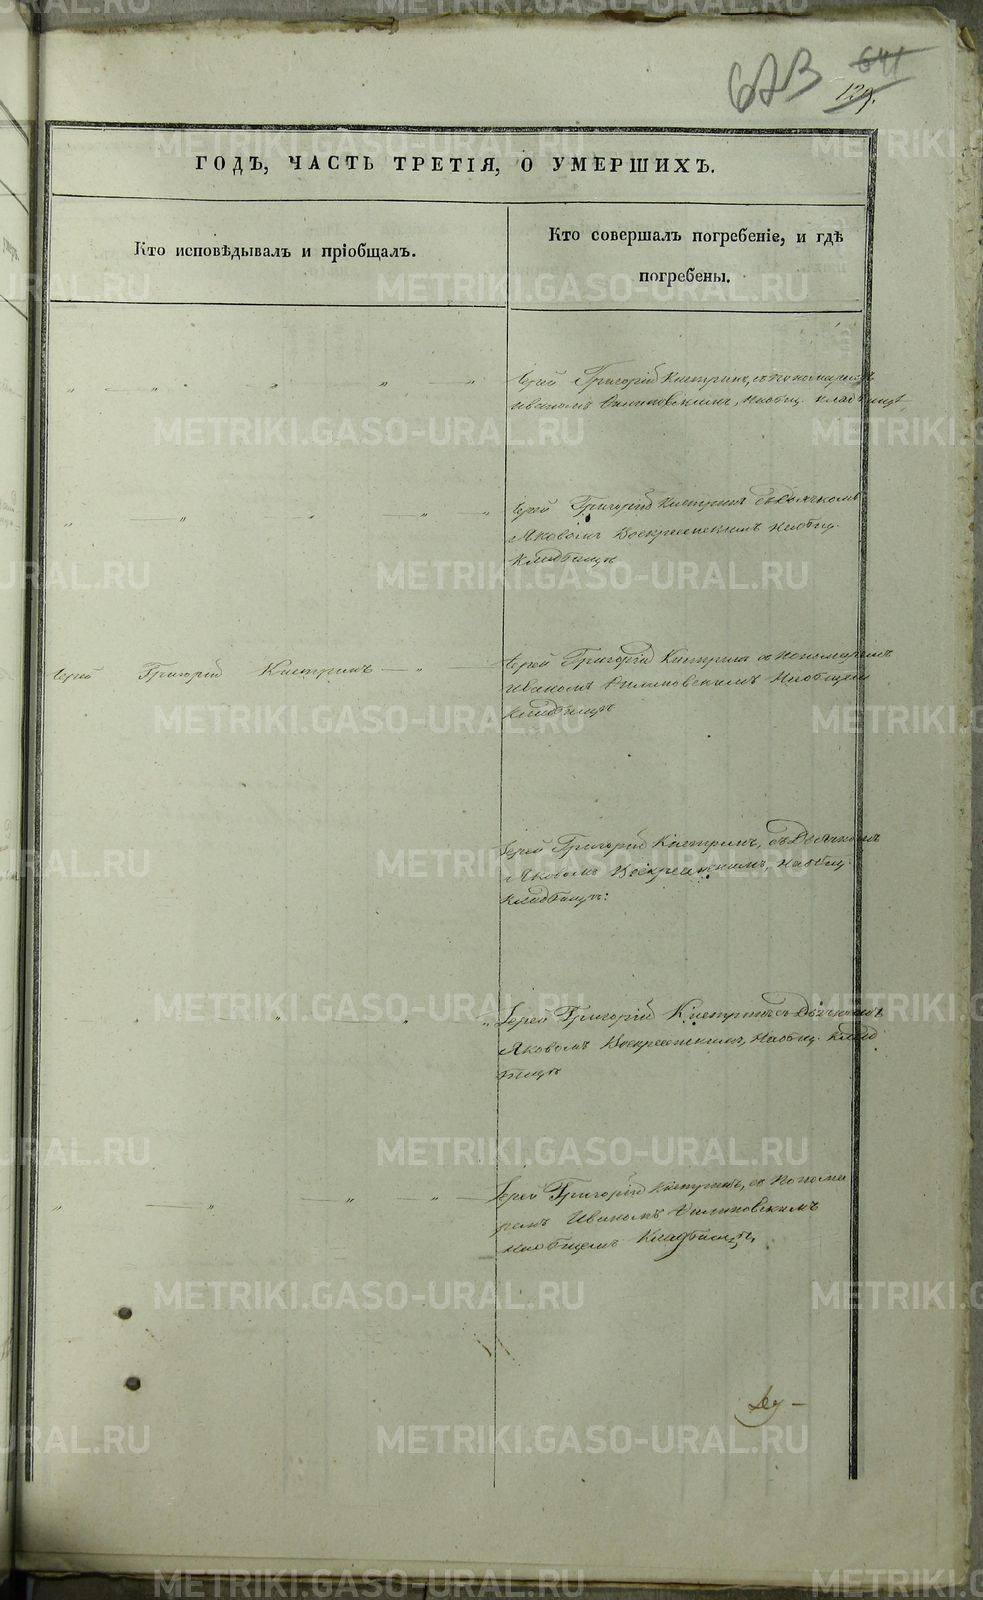 673 641
129.
ГОДЪ, ЧАСТЬ ТРЕТІЯ, О УМЕРШИХЪ.
Кто исповѣдывалъ и пріобщалъ.
Кто совершалъ погребеніе, и гдѣ
погребены.
Іерей Григорій Кистринъ, съ пономаремъ
Иваномъ Филиповскимъ, на общ. кладбищѣ
Іерей Григорій Кистринъ съ Дьячкомъ
Яковомъ Воскресенскимъ на общ.
кладбищѣ
Іерей Григорій Кистринъ
Іерей Григорій Кистринъ съ пономаремъ
Иваномъ Филиповскимъ на общемъ
кладбищѣ
Іерей Григорій Кистринъ, съ Дьячкомъ
Яковомъ Воскресенскимъ, на общ.
кладбищѣ:
Іерей Григорій Кистринъ съ Дьячкомъ
Яковомъ Воскресенскимъ, на общ. клад
бищѣ
Іерей Григорій Кистринъ, съ Понома
ремъ Иваномъ Филиповскимъ
на общемъ Кладбищѣ,
METRIKI.GASO-URAL.RU